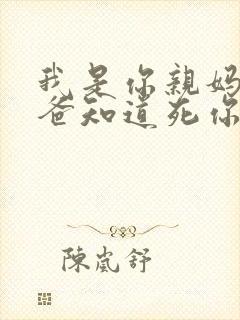 我是你親媽
爸知道死你
陳嵐舒